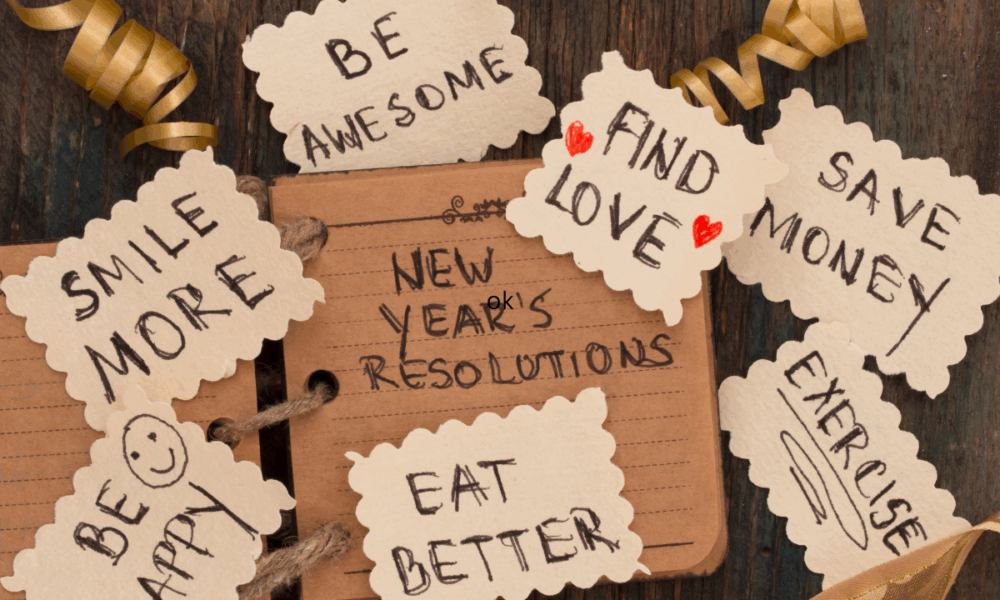 BE
AWESOME
FIND
LOVE
SAVE
MONEY
SMILE
MORE
NEW
YEAR'S
RESOLUTIONS
ok
EXERCISE
BE
APPY
EAT
BETTER